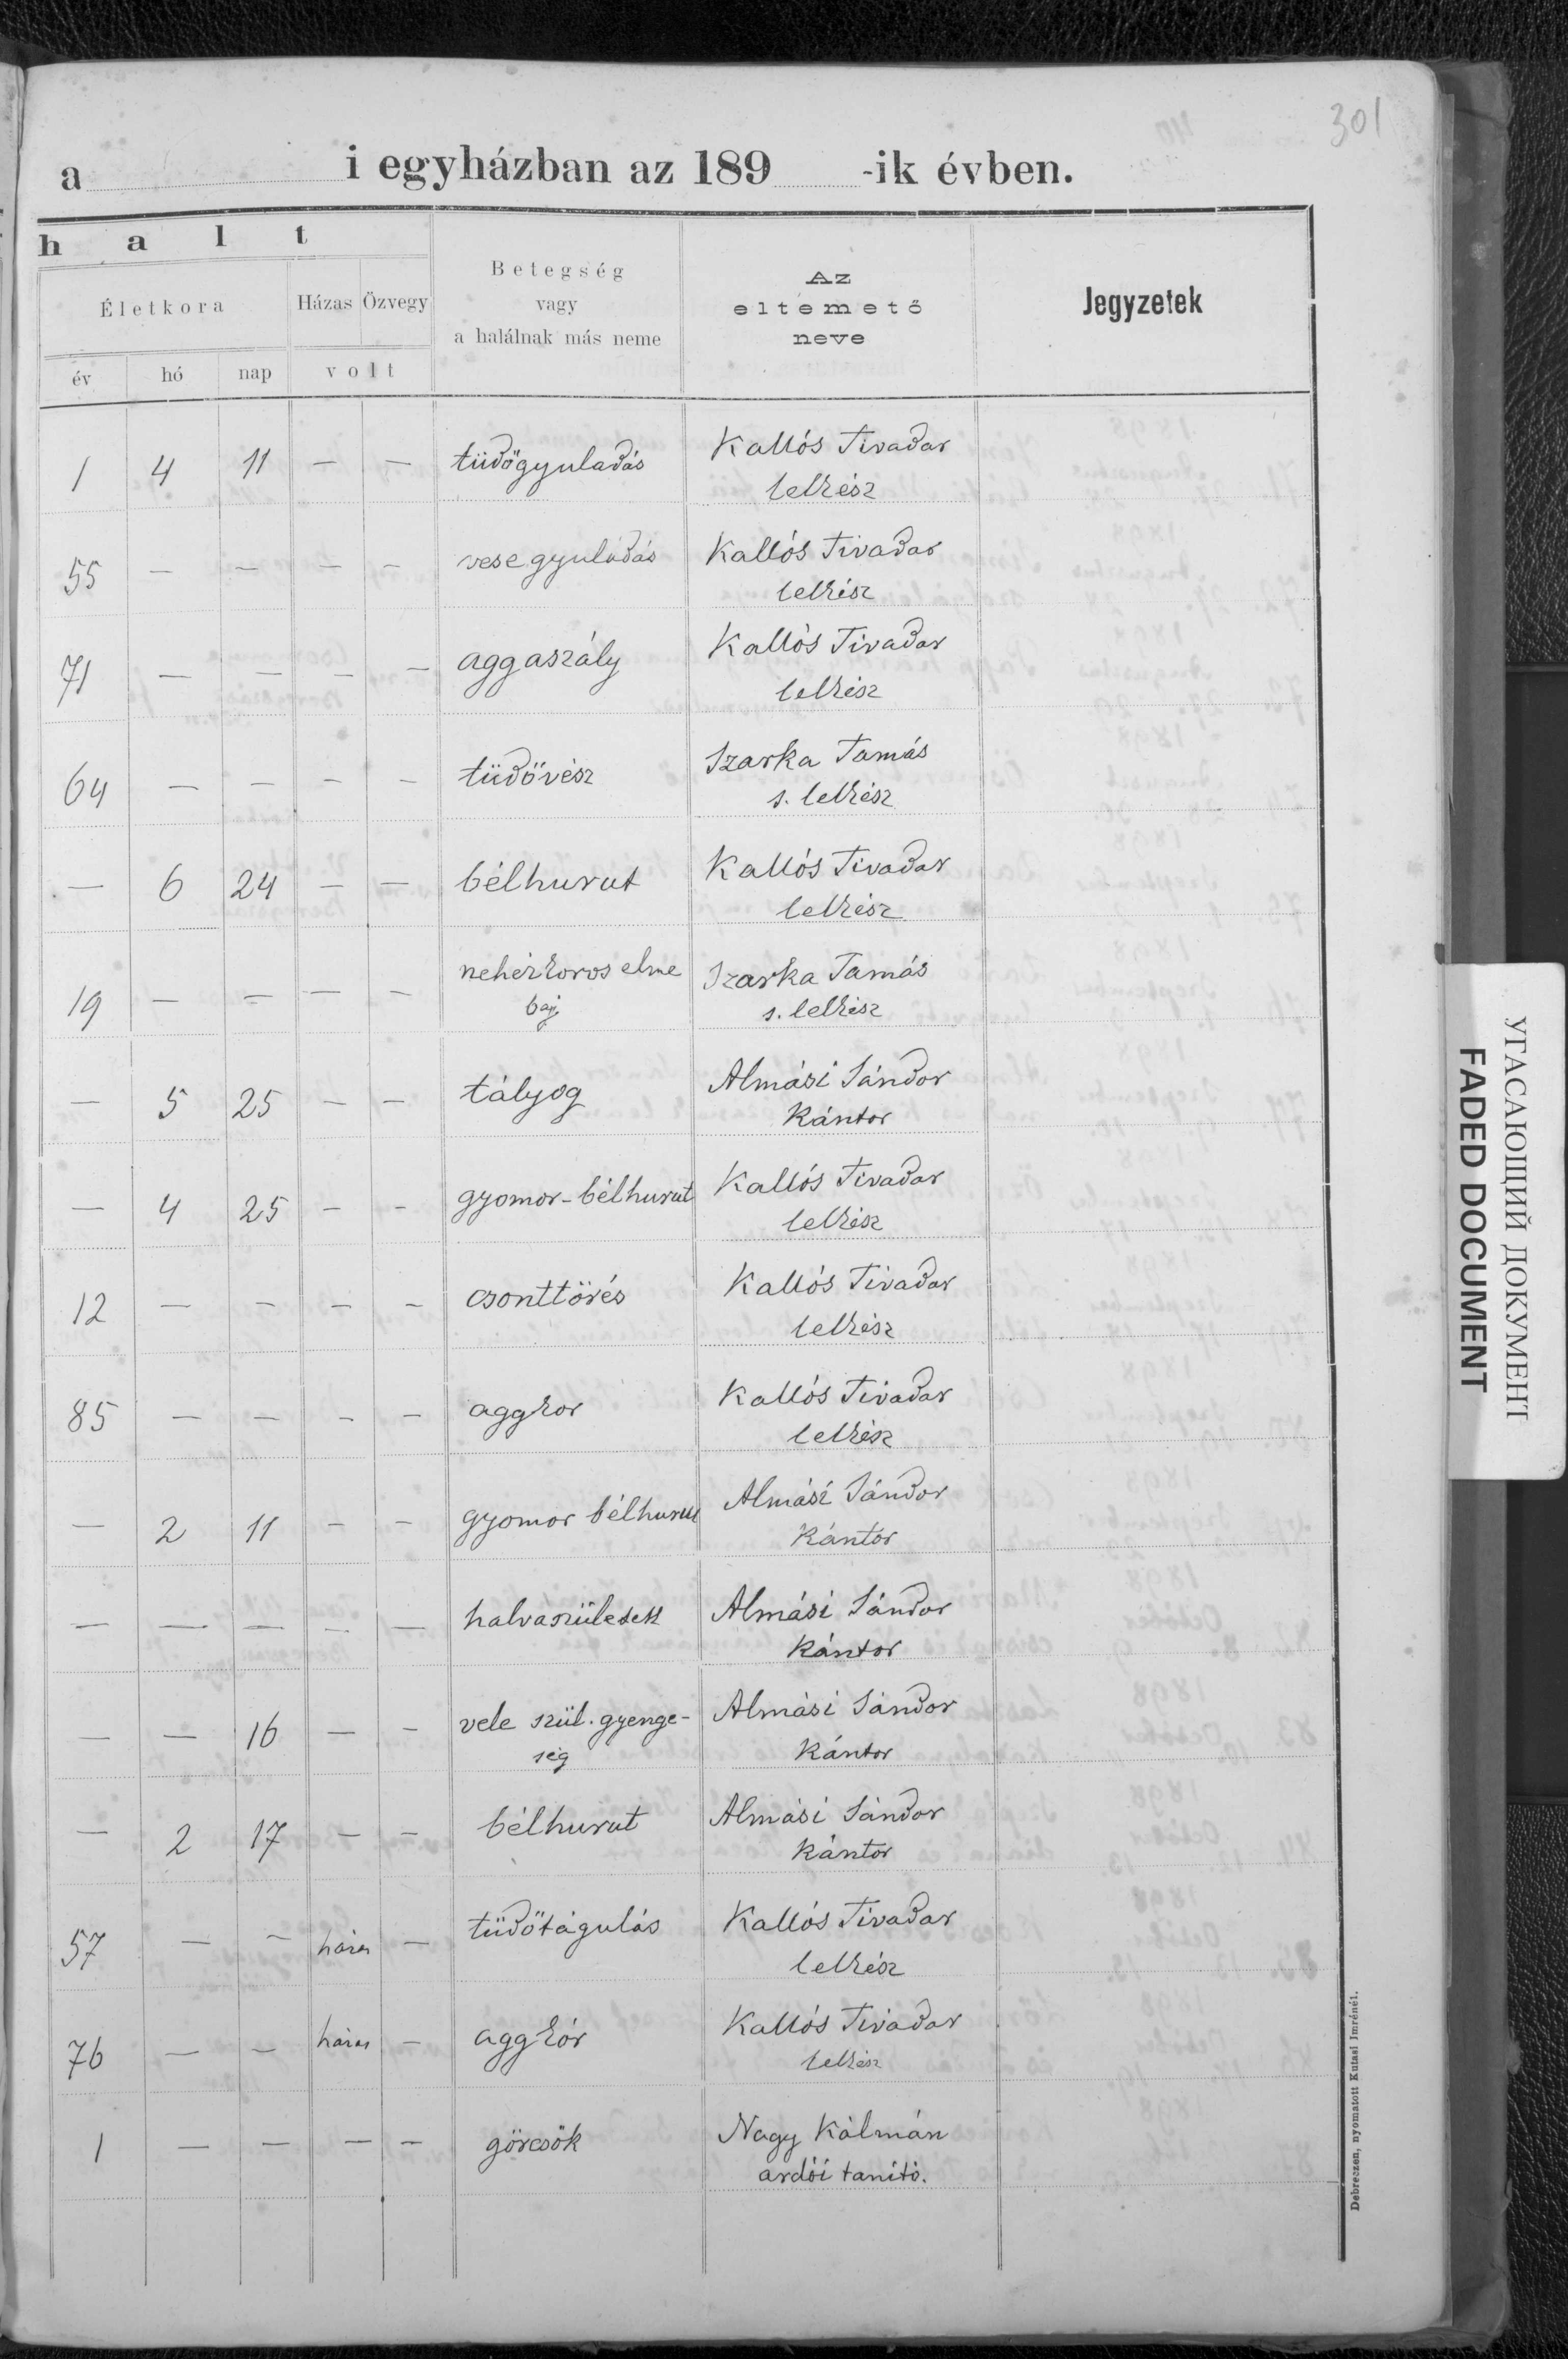 301
a i egyházban az 189 -ik évben.
h a l t
Életkora
Házas Özvegy
Betegség
vagy
a halálnak más neme
Az
eltemető
neve
Jegyzetek
év hó nap volt
1 4 11 — — tüdőgyuladás Kallós Tivadar
lelkész
55 — — — — vesegyuladás Kallós Tivadar
lelkész
71 — — — — aggaszály Kallós Tivadar
lelkész
64 — — — — tüdővész Szarka Tamás
s. lelkész
— 6 24 — — bélhurut Kallós Tivadar
lelkész
19 — — — — nehézkoros elme Szarka Tamás
baj s. lelkész
— 5 25 — — tályog Almási Sándor
Kántor
— 4 25 — — gyomor-bélhurut Kallós Tivadar
lelkész
12 — — — — csonttörés Kallós Tivadar
lelkész
85 — — — — aggkor Kallós Tivadar
lelkész
— 2 11 — — gyomor bélhurut Almási Sándor
Kántor
— — — — — halvaszületett Almási Sándor
Kántor
— — 16 — — vele szül. gyenge- Almási Sándor
ség Kántor
— 2 17 — — bélhurut Almási Sándor
Kántor
57 — — házas — tüdőtágulás Kallós Tivadar
lelkész
76 — — házas — aggkór Kallós Tivadar
lelkész
1 — — — — görcsök Nagy Kálmán
ardói tanító.
Debreczen, nyomatott Kutasi Imrénél.
УГАСАЮЩИЙ ДОКУМЕНТ
FADED DOCUMENT